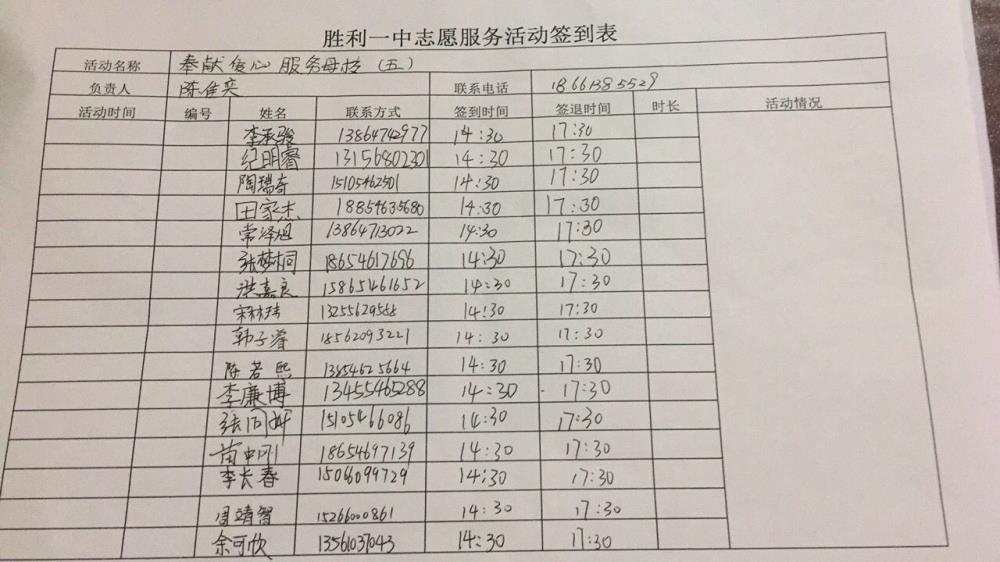 胜利一中志愿服务活动签到表
活动名称 奉献爱心 服务母校 (五)
负责人 陈佳奕 联系电话 18661385529
活动时间 编号 姓名 联系方式 签到时间 签退时间 时长 活动情况
李承骏 13864742977 14:30 17:30
纪明睿 13156802301 14:30 17:30
陶瑞奇 15105462501 14:30 17:30
田家杰 18854635680 14:30 17:30
常泽旭 13864713022 14:30 17:30
张梦桐 18654617696 14:30 17:30
洪嘉良 15865461652 14:30 17:30
宋林玮 14:30 17:30
韩子睿 18562093221 14:30 17:30
陈若熙 13854625664 14:30 17:30
李廉博 13455465288 14:30 17:30
张闫妍 15105466086 14:30 17:30
苗中刚 18654697139 14:30 17:30
李长春 15066099729 14:30 17:30
周靖智 15266000861 14:30 17:30
余可欣 13561037043 14:30 17:30